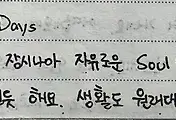 Days
장시나아 자유로운 Soul
듯 해요. 생활도 원래대